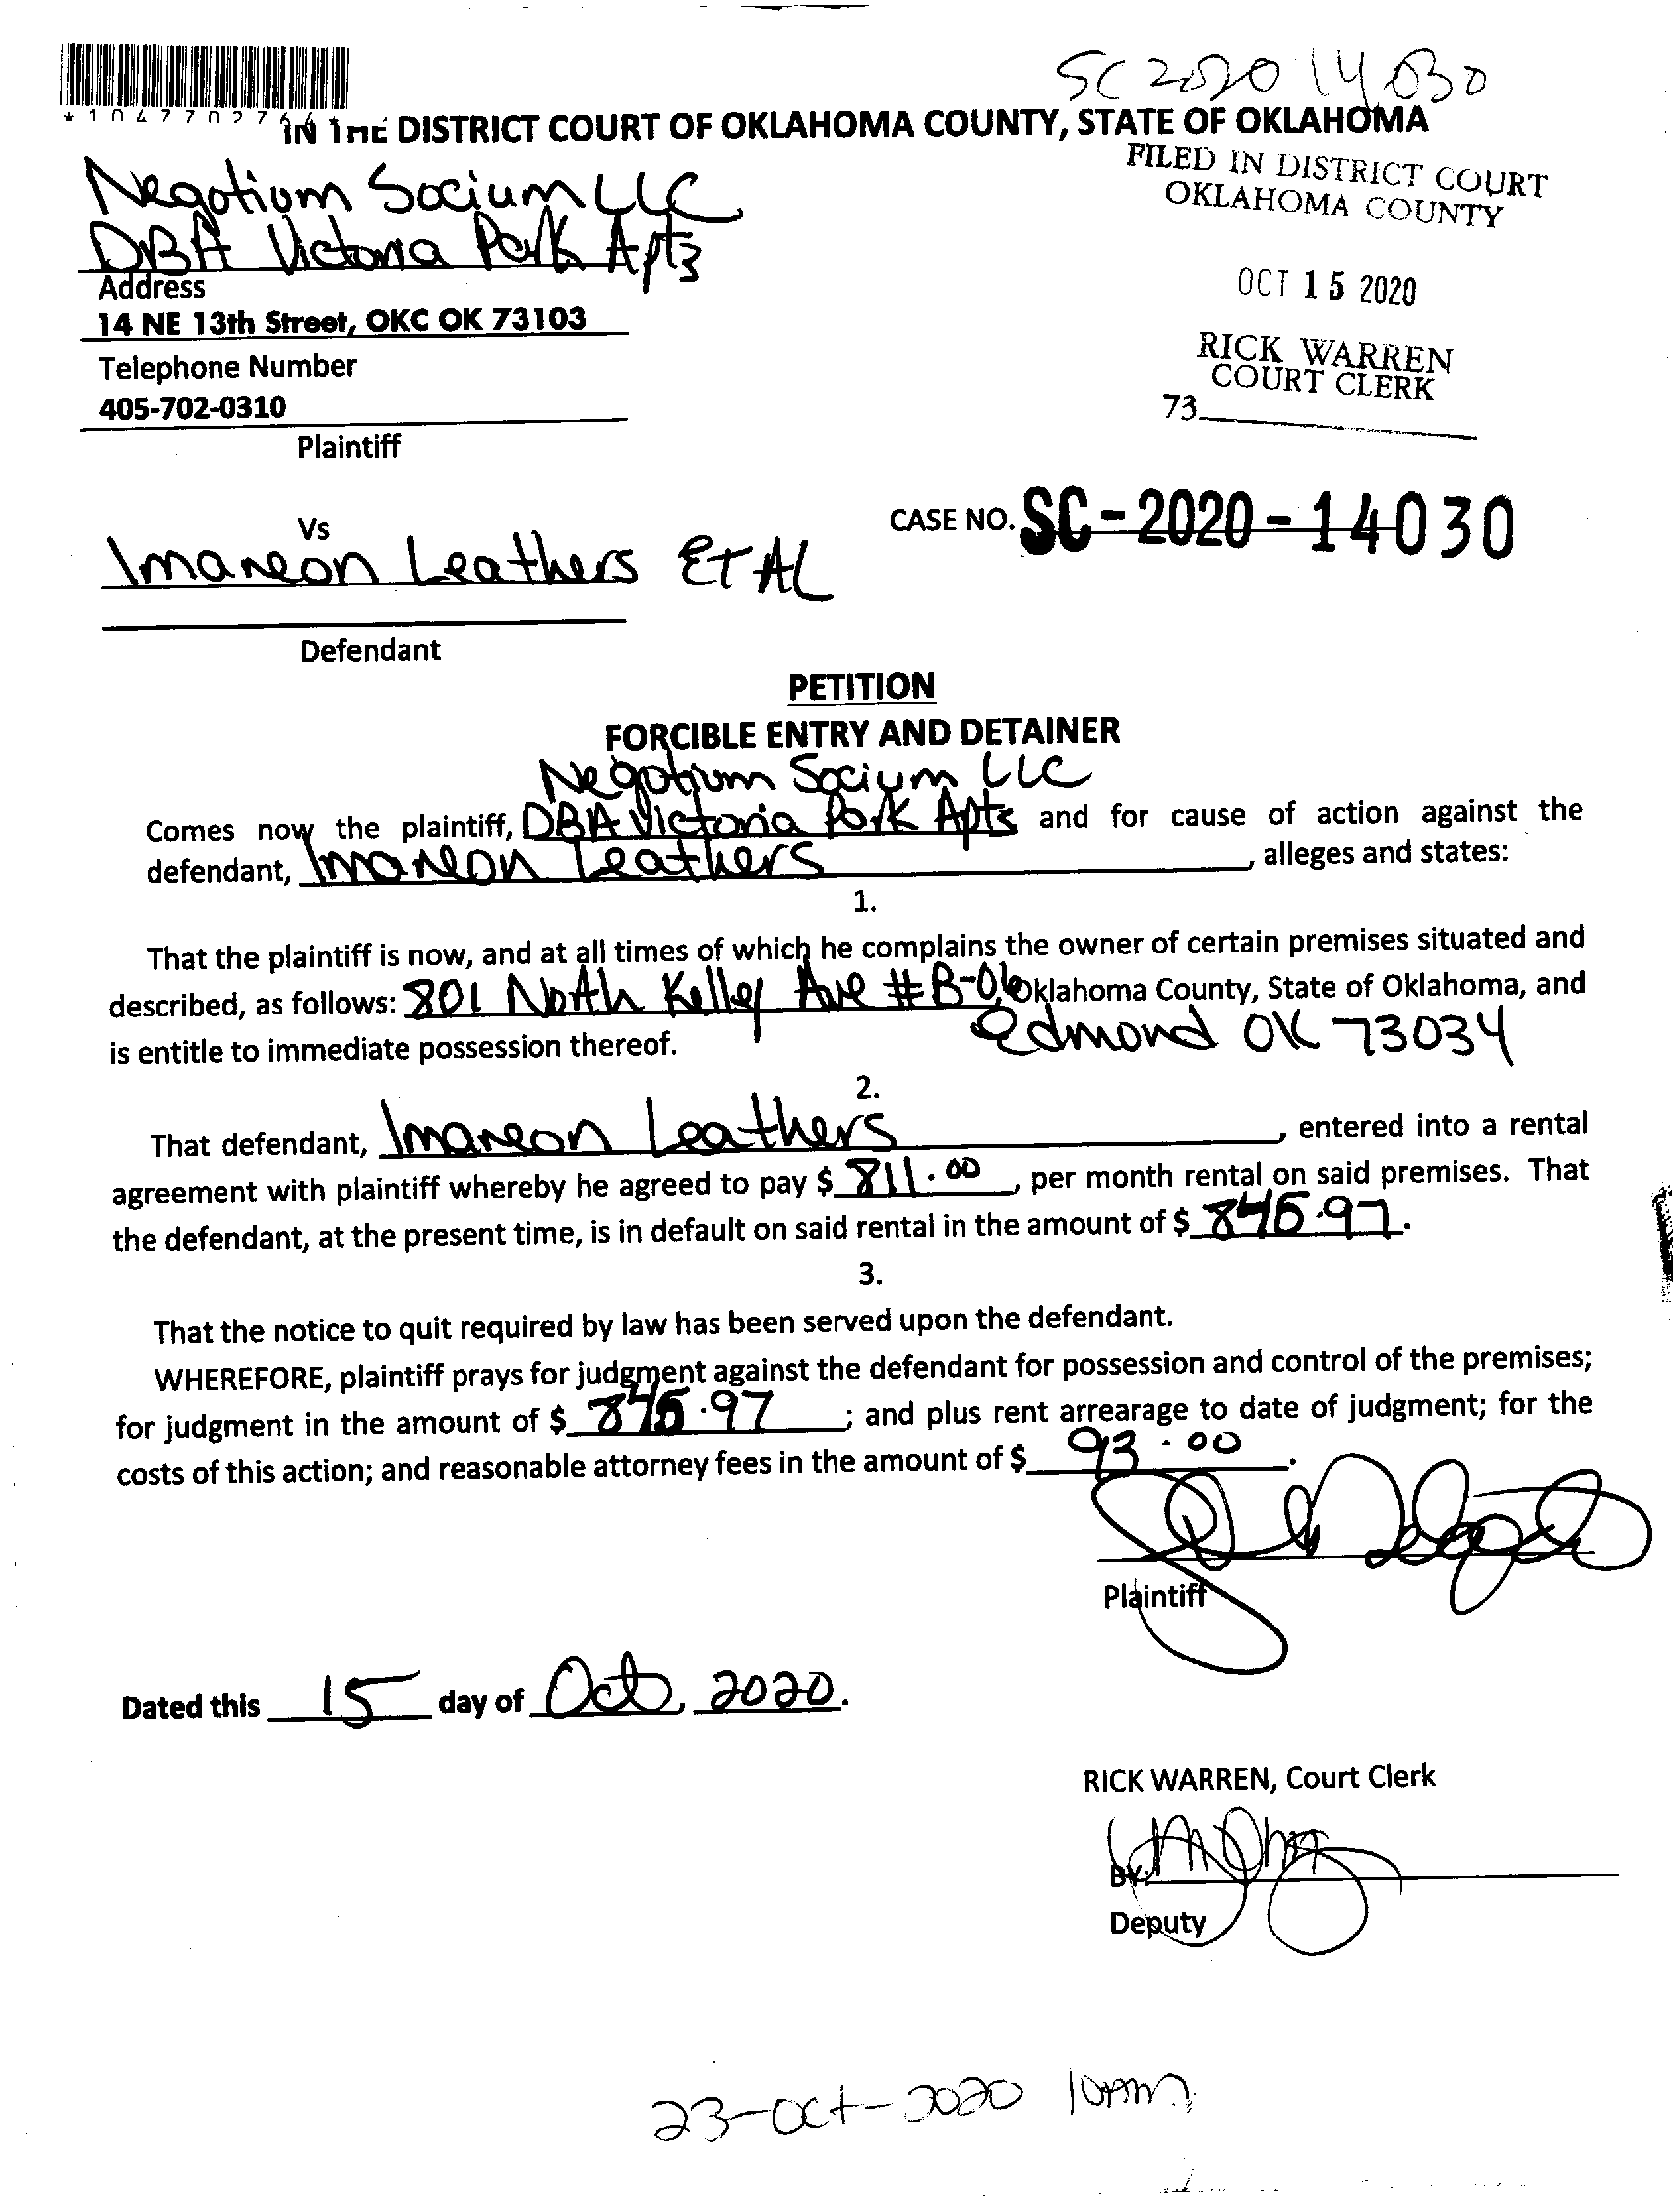 SC 2020 14030
IN THE DISTRICT COURT OF OKLAHOMA COUNTY, STATE OF OKLAHOMA
FILED IN DISTRICT COURT
OKLAHOMA COUNTY
OCT 15 2020
RICK WARREN
COURT CLERK
73
Negotium Socium LLC
DBA Victoria Park Apts
Address
14 NE 13th Street, OKC OK 73103
Telephone Number
405-702-0310
Plaintiff
Vs
CASE NO. SC-2020-14030
Imaneon Leathers ET AL
Defendant
PETITION
FORCIBLE ENTRY AND DETAINER
Negotium Socium LLC
Comes now the plaintiff, DBA Victoria Park Apts and for cause of action against the
defendant, Imaneon Leathers, alleges and states:
1.
That the plaintiff is now, and at all times of which he complains the owner of certain premises situated and
described, as follows: 801 North Kelley Ave #B-06 Oklahoma County, State of Oklahoma, and
is entitle to immediate possession thereof. Edmond OK 73034
2.
That defendant, Imaneon Leathers, entered into a rental
agreement with plaintiff whereby he agreed to pay $ 811.00, per month rental on said premises. That
the defendant, at the present time, is in default on said rental in the amount of $ .97.
3.
That the notice to quit required by law has been served upon the defendant.
WHEREFORE, plaintiff prays for judgment against the defendant for possession and control of the premises;
for judgment in the amount of $ .97; and plus rent arrearage to date of judgment; for the
costs of this action; and reasonable attorney fees in the amount of $ 93.00.
Plaintiff
Dated this 15 day of Oct, 2020.
RICK WARREN, Court Clerk
BY:
Deputy
23-Oct-2020 10AM